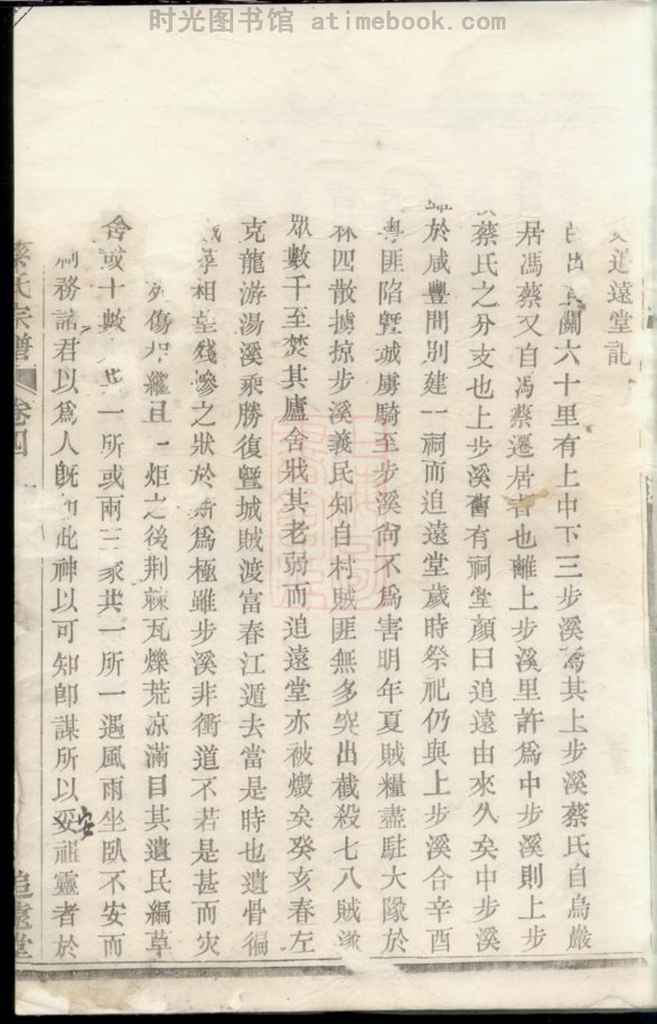 时光图书馆 atimebook.com
追遠堂記
出 關六十里有上中下三步溪爲其上步溪蔡氏自烏巖
居馮蔡又自馮蔡遷居者也離上步溪里許爲中步溪則上步
蔡氏之分支也上步溪舊有祠堂顏曰追遠由來久矣中步溪
於咸豐間別建一祠而追遠堂歲時祭祀仍與上步溪合辛酉
粵匪陷暨城虜騎至步溪尙不爲害明年夏賊糧盡駐大隊於
林四散擄掠步溪義民知自村賊匪無多突出截殺七八賊遂
眾數千至焚其廬舍戕其老弱而追遠堂亦被燬矣癸亥春左
克龍游湯溪乘勝復暨城賊渡富春江遁去當是時也遺骨徧
草相望殘慘之狀於斯爲極雖步溪非衝道不若是甚而灾
死傷相繼且一炬之後荆棘瓦爍荒凉滿目其遺民編草
舍或十數 共一所或兩三家共一所一遇風雨坐臥不安而
務諸君以爲人旣如此神以可知卽謀所以妥安祖靈者於
蔡氏宗譜 卷四 一 追遠堂